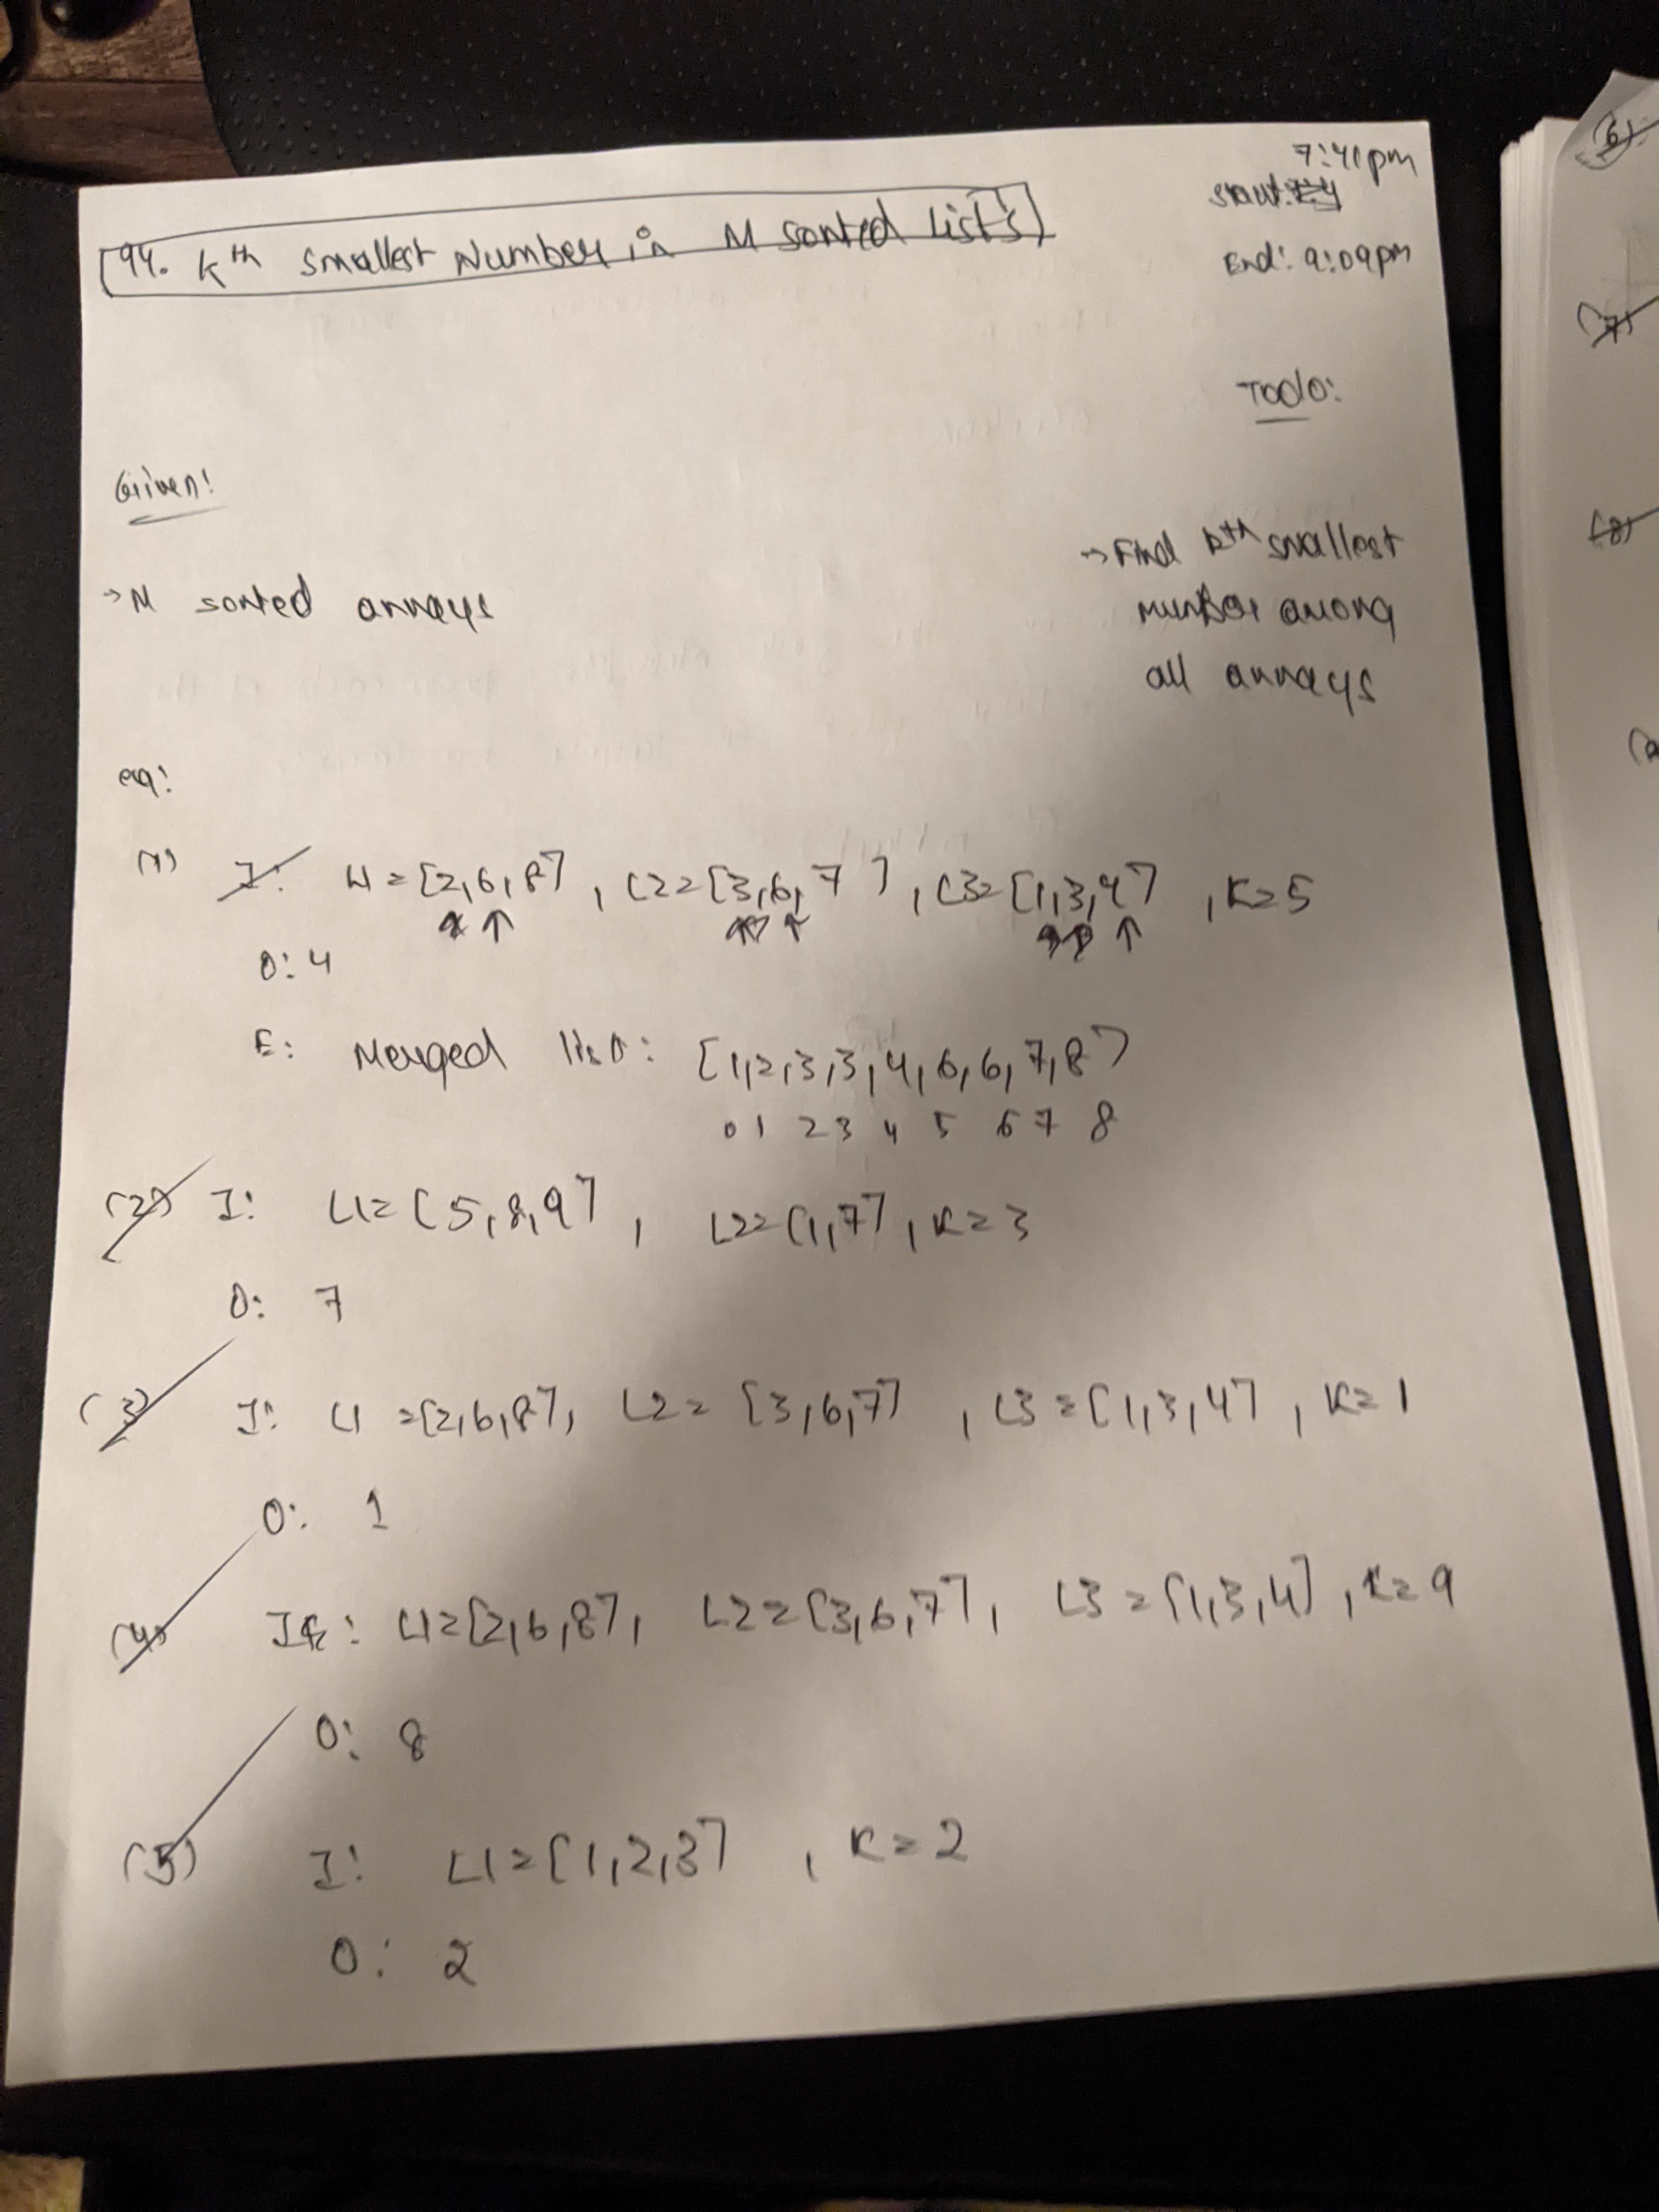 7:41pm
Start:
End: 9:09pm
94. Kth Smallest Number in M Sorted Lists
Todo:
Given:
→ M sorted arrays
→ Find kth smallest
number among
all arrays
eg:
(1) I: L1 = [2,6,8], L2 = [3,6,7], L3 = [1,3,4], K=5
O: 4
E: Merged list: [1,2,3,3,4,6,6,7,8]
0 1 2 3 4 5 6 7 8
(2) I: L1 = [5,8,9], L2 = [1,7], K=3
O: 7
(3) I: L1 = [2,6,8], L2 = [3,6,7], L3 = [1,3,4], K=1
O: 1
(4) I: L1 = [2,6,8], L2 = [3,6,7], L3 = [1,3,4], K=9
O: 8
(5) I: L1 = [1,2,3], K=2
O: 2
(6)
(7)
(8)